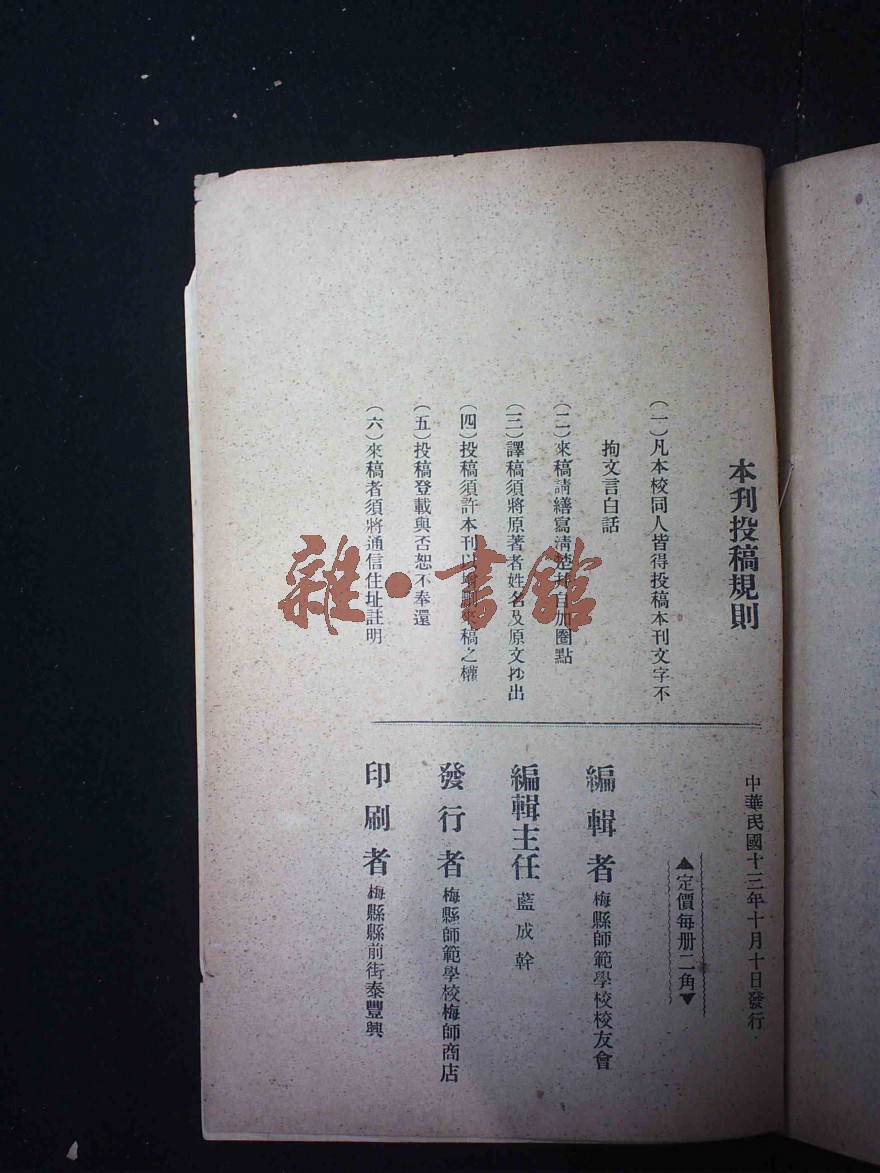 本刋投稿規則
（一）凡本校同人皆得投稿本刊文字不
拘文言白話
（二）來稿請繕寫淸楚并自加圈點
（三）譯稿須將原著者姓名及原文抄出
（四）投稿須許本刊以增刪來稿之權
（五）投稿登載與否恕不奉還
（六）來稿者須將通信住址註明
中華民國十三年十月十日發行
▲定價每册二角▼
編輯者 梅縣師範學校校友會
編輯主任 藍成幹
發行者 梅縣師範學校梅師商店
印刷者 梅縣縣前街泰豐興
雜·書館